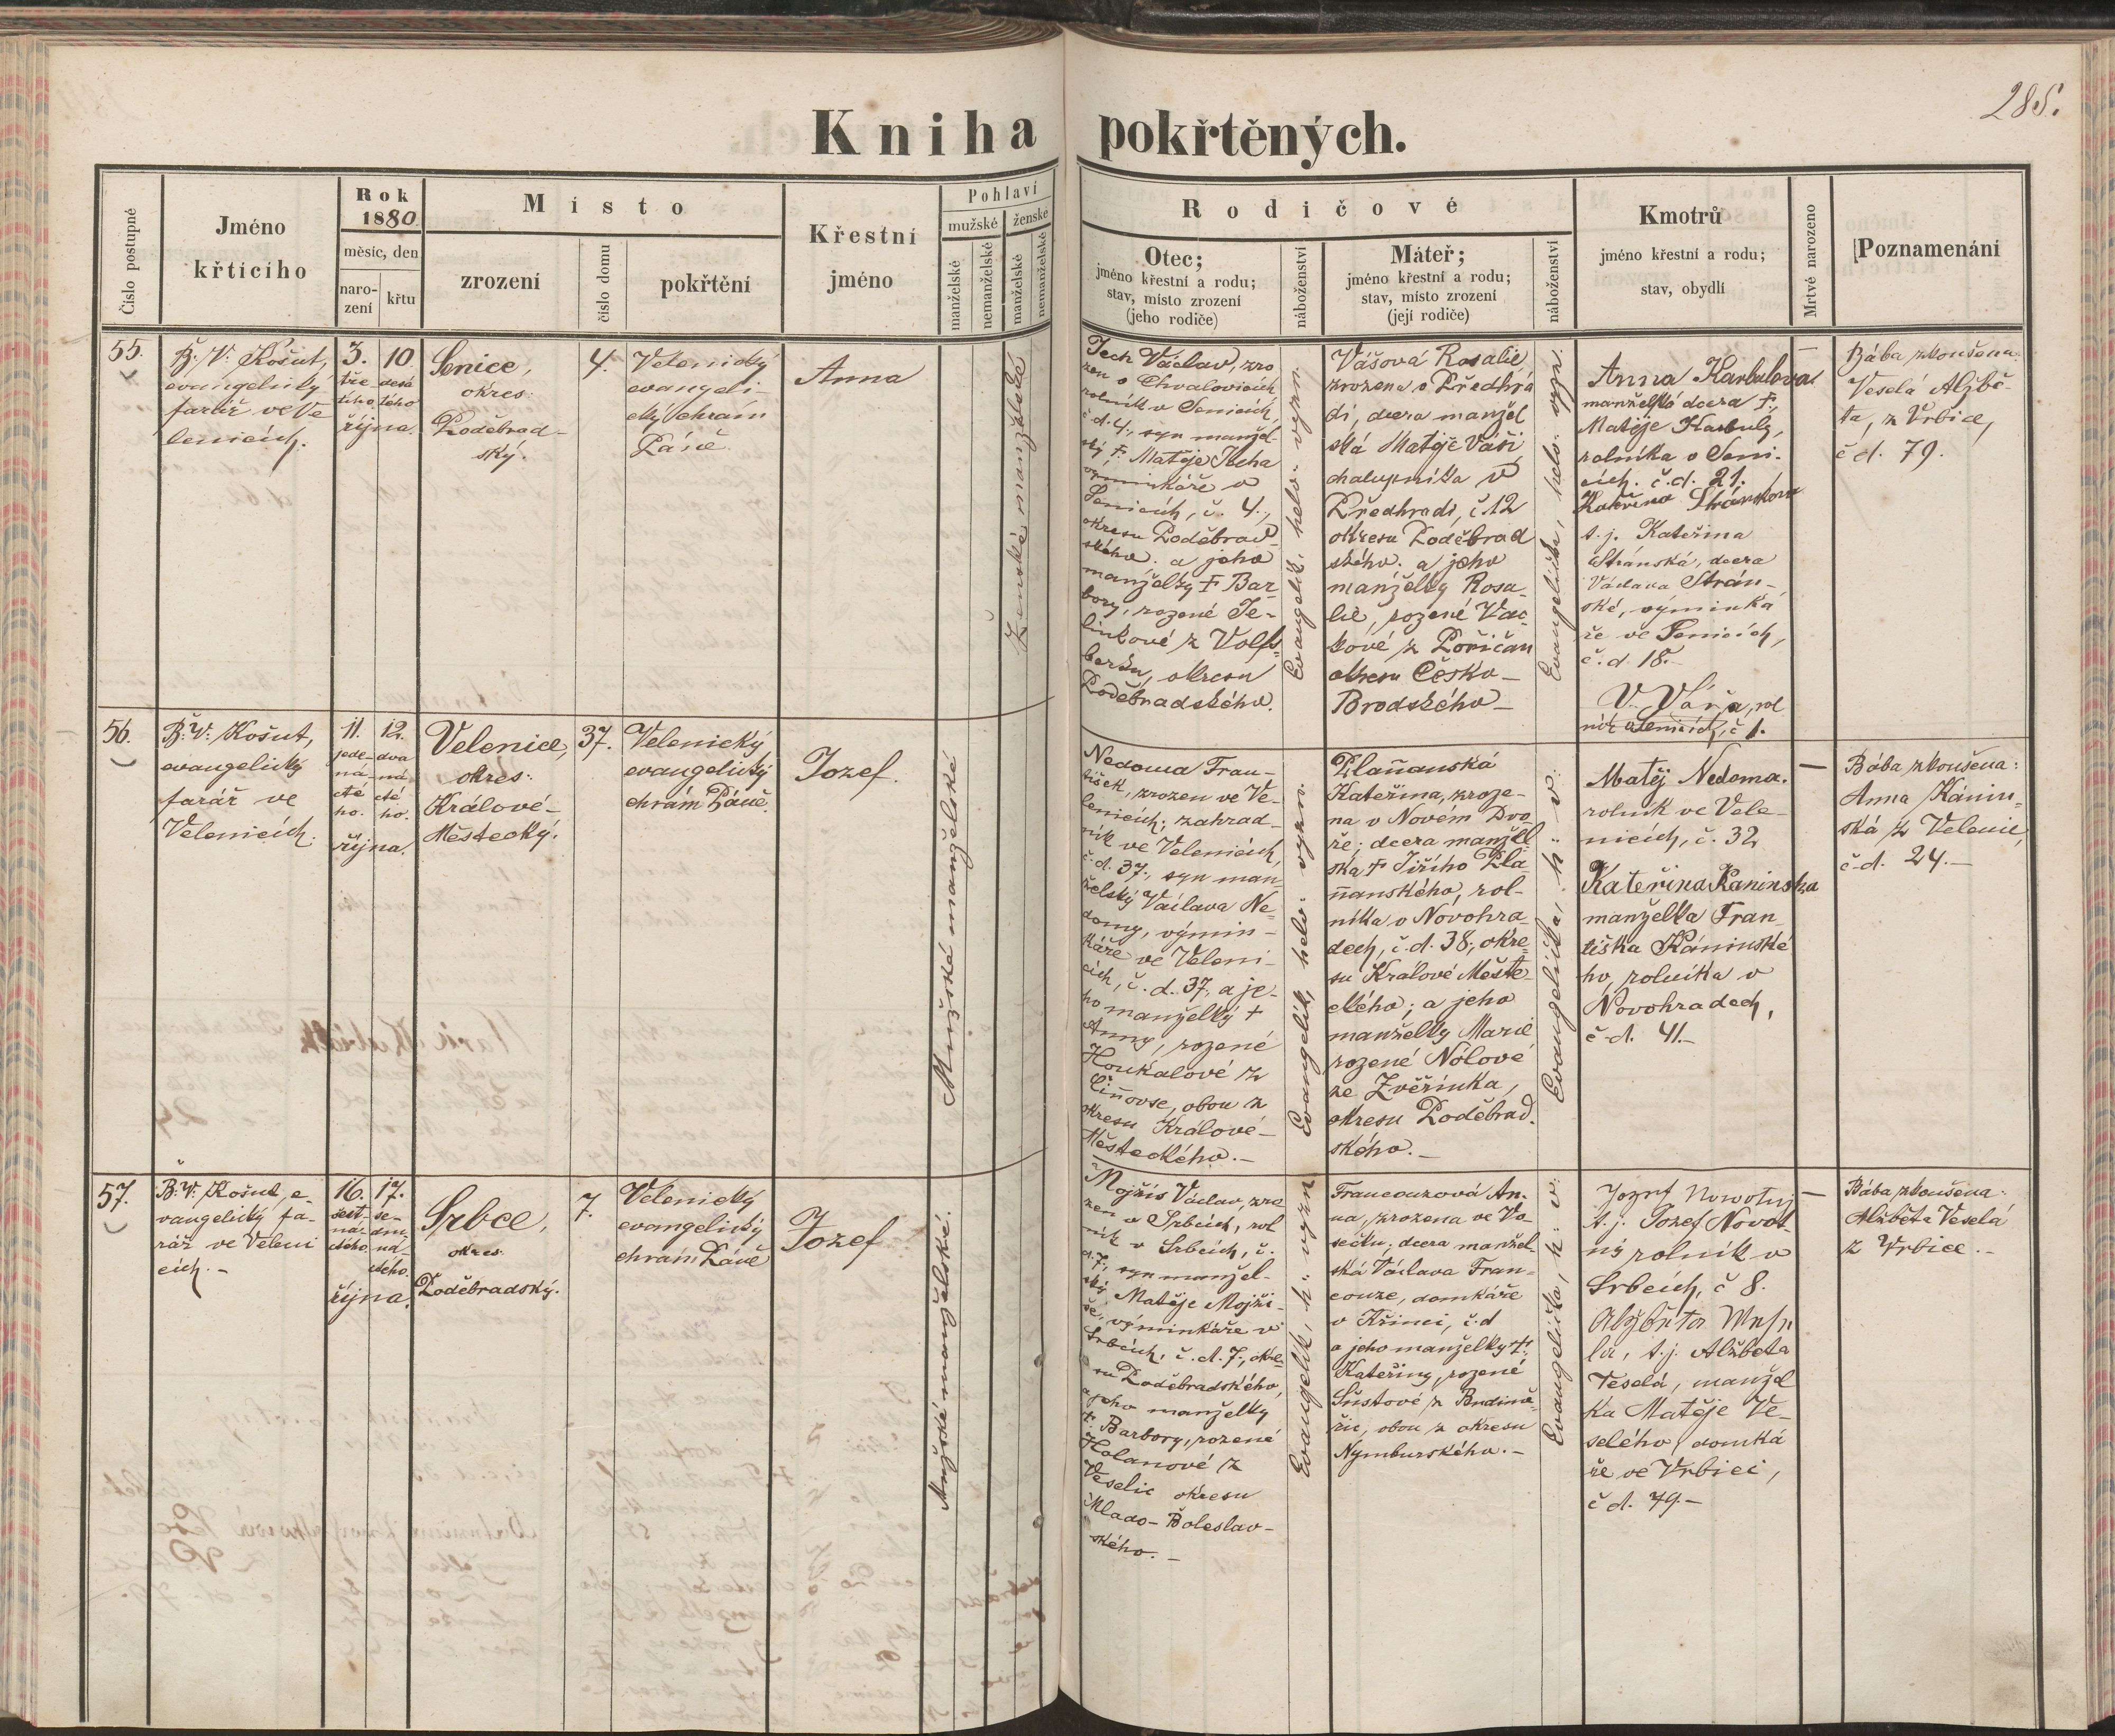 285.
Kniha pokřtěných.
Číslo postupné
Jméno
křtícího
Rok
1880.
měsíc, den
naro-
zení
křtu
Místo
zrození
číslo domu
pokřtění
Křestní
jméno
Pohlaví
mužské
ženské
manželské
nemanželské
manželské
nemanželské
Rodičové
Otec;
jméno křestní a rodu;
stav, místo zrození
(jeho rodiče)
náboženství
Máteř;
jméno křestní a rodu;
stav, místo zrození
(její rodiče)
náboženství
Kmotrů
jméno křestní a rodu;
stav, obydlí
Mrtvé narozeno
Poznamenání
55.
B. V. Košut,
evangelický
farář ve Ve
lenicích.
3.
tře-
tího
10
desá
tého
října.
Senice,
okres:
Poděbrad-
ský.
4.
Velenický
evangeli-
cký chrám
Páně
Anna
Ženské manželské
Jech Václav, zro
zen v Chvalovicích
rolník v Senicích,
č.d. 4., syn manžel-
ský † Matěje Jecha
výminkáře v
Senicích, č. 4.,
okresu Poděbrad-
ského. a jeho
manželky † Bar-
bory, rozené Je-
línkové z Volfs-
berku, okresu
Poděbradského.
Evangelík, helv. vyzn.
Vášová Rosalie,
zrozena v Předhra
dí, dcera manžel
ská Matěje Váši,
chalupníka v
Předhradí, č. 12
okresu Poděbrad
ského. a jeho
manželky Rosa-
lie, rozené Vac-
kové z Poříčan
okresu Česko-
Brodského-
Evangelička, helv. vyzn.
Anna Karbulova
manželská dcera †.
Matěje Karbuly,
rolníka v Seni-
cích. č.d. 21.
Kateřina Stránskova
t.j. Kateřina
Stránská, dcera
Václava Strán-
ské, výminká
ře ve Senicích,
č.d. 18.-
V. Váša, rol
ník v Senicích, č 1.
Bába zkoušena
Veselá Alžbě-
ta, z Vrbice,
č d. 79.
56.
B. V. Košut,
evangelický
farář ve
Velenicích.
11.
jede-
ná-
cté
ho.
12.
dva
ná
cté
ho.
října.
Velenice,
okres:
Králové-
Městecký.
37.
Velenický
evangelický
chrám Páně.
Jozef.
Mužské manželské
Nedoma Fran-
tišek, zrozen ve Ve-
lenicích; zahrad-
ník ve Velenicích,
č.d. 37., syn man-
želský Václava Ne-
domy, výmin-
káře ve Veleni-
cích, č. d. 37., a je-
ho manželky †
Anny, rozené
Houkalové z
Činovse, obou z
okresu Králové-
Městeckého.-
Evangelík, helv. vyzn.
Plaňanská
Kateřina, zroze-
na v Novém Dvo-
ře; dcera manžel
ská † Jiřího Pla
ňanského, rol-
níka v Novohra
dech, č.d. 38., okre-
su Králové Měste
ckého; a jeho
manželky Marie
rozené Nólové
ze Zvěřínka,
okresu Poděbrad.
ského.-
Evangelička, h. v.
Matěj Nedoma.
rolník ve Vele-
nicích, č. 32
Kateřina Kaninska
manželka Fran
tiška Káninské
ho, rolníka v
Novohradech,
č.d. 41.-
—
Bába zkoušena:
Anna Kánin-
ská z Velenic,
č.d. 24.-
57.
B. V. Košut, e-
vangelický fa-
rář ve Veleni
cích.-
16.
šest
ná-
ctého
17.
se-
dm-
ná-
ctého.
října.
Srbce,
okres
Poděbradský.
7.
Velenický
evangelický
chrám Páně
Jozef
Mužské manželské.
Mojžíš Václav, zro
zen v Srbcích, rol
ník v Srbcích, č.
d. 7., syn manžel-
ský Matěje Mojží-
še, výminkáře v
Srbcích, č.d. 7., okre-
su Poděbradského,
a jeho manželky
† Barbory, rozené
Holanové z
Veselic okresu
Mlado-Boleslav-
ského.-
Evangelík, h. vyzn
Francouzová An-
na, zrozena ve Vo-
sečku; dcera manžel-
ská Václava Fran-
couze, domkáře
v Křinci, č.d
a jeho manželky †.
Kateřiny, rozené
Šustové z Budimě-
řic, obou z okresu
Nymburského.-
Evangelička, h. v.
Jozef Nowotný
t.j. Jozef Novot
ný rolník v
Srbcích, č 8.
Alžběta Wese
la, t.j. Alžběta
Veselá, manžel
ka Matěje Ve-
selého, domká
ře ve Vrbici,
č d. 79.-
—
Bába zkoušena:
Alžběta Veselá
z Vrbice.-